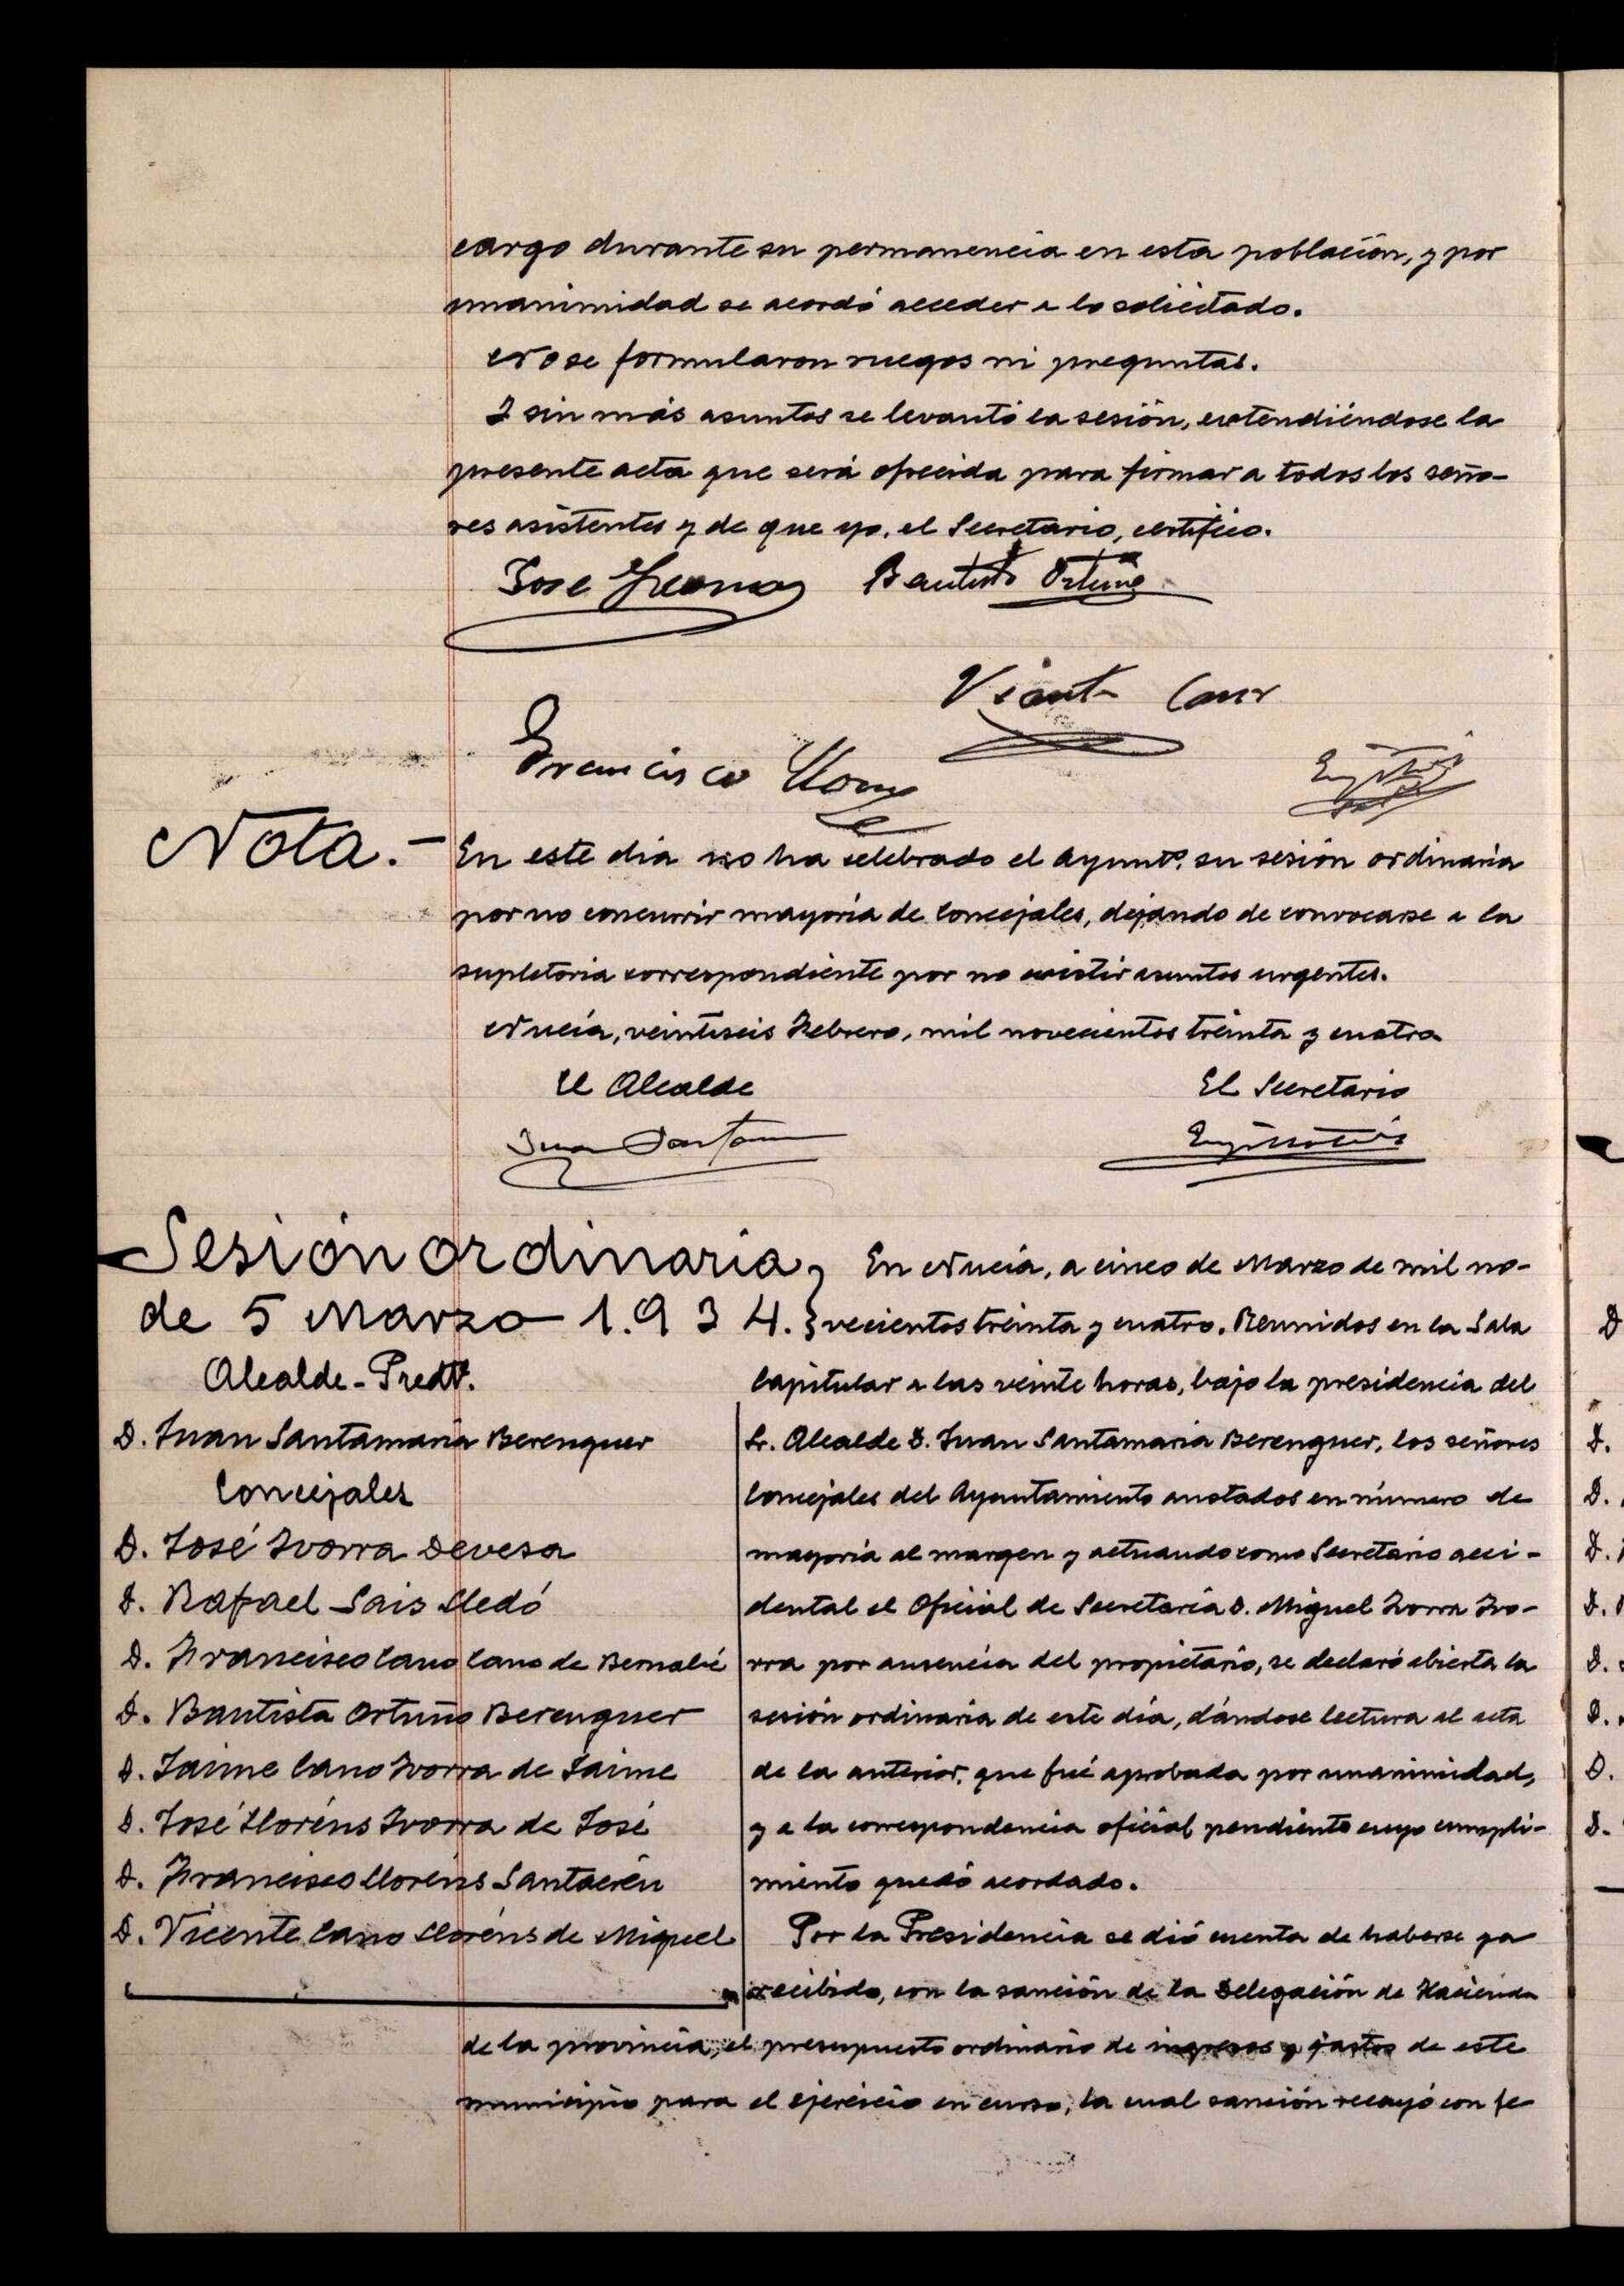 cargo durante su permanencia en esta población, y por
unanimidad se acordó acceder a lo solicitado.
No se formularon ruegos ni preguntas.
Y sin más asuntos se levantó la sesión, extendiéndose la
presente acta que será ofrecida para firmar a todos los seño-
res asistentes y de que yo, el Secretario, certifico.
Jose
Bautista Ortuño
Vicente Cano
Francisco Llorens
Nota.- En este día no ha celebrado el Ayuntº. su sesión ordinaria
por no concurrir mayoría de Concejales, dejando de convocarse a la
supletoria correspondiente por no existir asuntos urgentes.
Nucía, veintiseis Febrero, mil novecientos treinta y cuatro
El Alcalde
El Secretario
Juan Santam
Sesión ordinaria
de 5 Marzo 1.934.}
Alcalde-Predtº.
D. Juan Santamaria Berenguer
Concejales
D. José Ivorra Devesa
D. Rafael Sais Lledó
D. Francisco Cano Cano de Bernabé
D. Bautista Ortuño Berenguer
D. Jaime Cano Ivorra de Jaime
D. José Lloréns Ivorra de José
D. Francisco Lloréns Santacréu
D. Vicente Cano Lloréns de Miguel
En Nucía, a cinco de Marzo de mil no-
vecientos treinta y cuatro. Reunidos en la Sala
Capitular a las veinte horas, bajo la presidencia del
Sr. Alcalde D. Juan Santamaria Berenguer, los señores
Concejales del Ayuntamiento anotados en número de
mayoría al margen y actuando como Secretario acci-
dental el Oficial de Secretaría D. Miguel Ivorra Ivo-
rra por ausencia del propietario, se declaró abierta la
sesión ordinaria de este día, dándose lectura al acta
de la anterior, que fué aprobada por unanimidad,
y a la correspondencia oficial pendiente cuyo cumpli-
miento quedó acordado.
Por la Presidencia se dió cuenta de haberse ya
recibido, con la sanción de la Delegación de Hacienda
de la provincia, el presupuesto ordinario de ingresos y gastos de este
municipio para el ejercicio en curso, la cual sanción recayó con fe